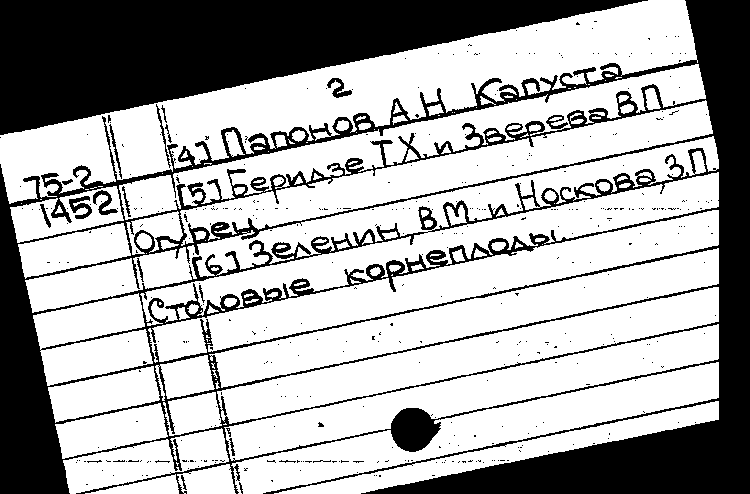 2
[4] Папонов, А.Н. Капуста
75-2
1452
[5] Беридзе, Т.Х. и Зверева В.П.
Огурец.
[6] Зеленин, В.М. и Носкова, З.П.
Столовые корнеплоды.